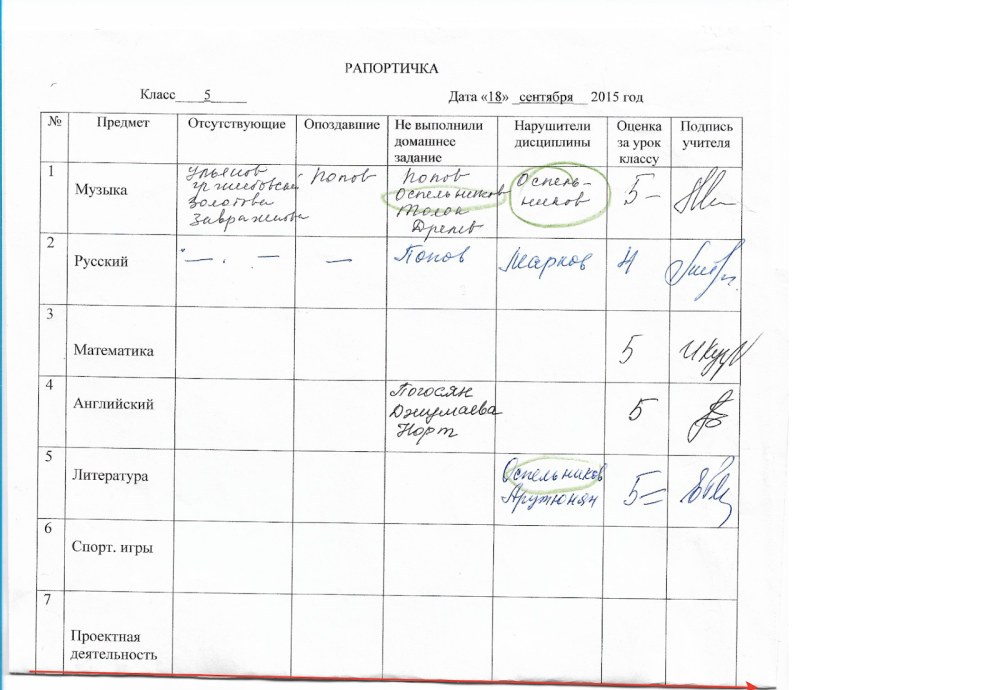 РАПОРТИЧКА
Класс 5 Дата «18» сентября 2015 год
№ Предмет Отсутствующие Опоздавшие Не выполнили домашнее задание Нарушители дисциплины Оценка за урок классу Подпись учителя
1 Музыка
Ульянов
Золотова
Попов
Попов
Оспельников
Молок
Оспель-
ников
5-
2 Русский — — — Попов Марков 4
3 Математика 5
4 Английский
Погосян
Джумаева
Норт
5
5 Литература
Оспельников
Арутюнян
5=
6 Спорт. игры
7 Проектная
деятельность